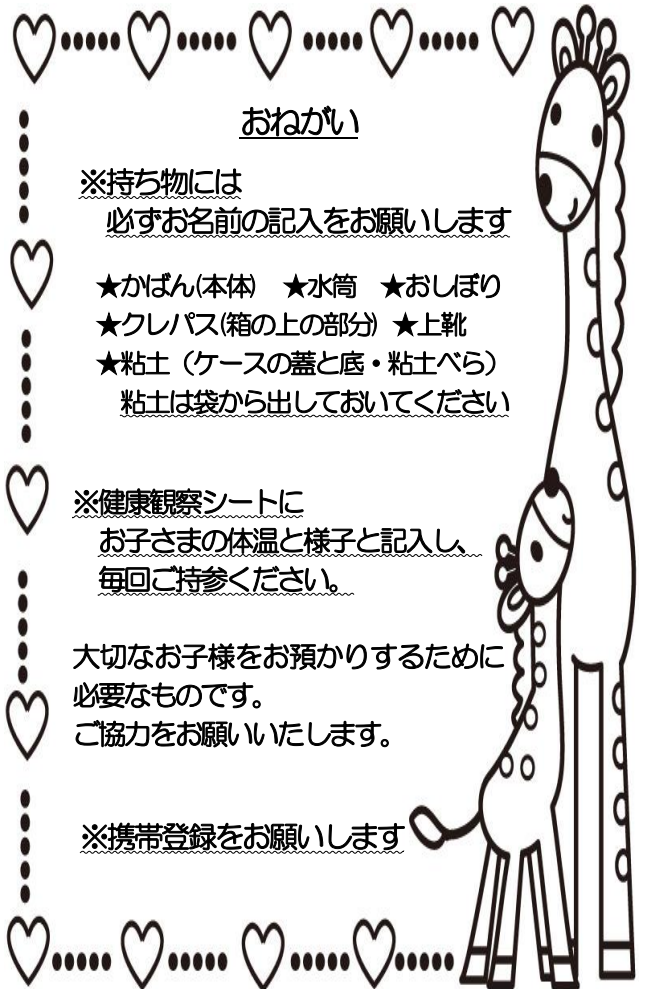 おねがい
※持ち物には
必ずお名前の記入をお願いします
★かばん(本体) ★水筒 ★おしぼり
★クレパス(箱の上の部分) ★上靴
★粘土（ケースの蓋と底・粘土べら）
粘土は袋から出しておいてください
※健康観察シートに
お子さまの体温と様子と記入し、
毎回ご持参ください。
大切なお子様をお預かりするために
必要なものです。
ご協力をお願いいたします。
※携帯登録をお願いします